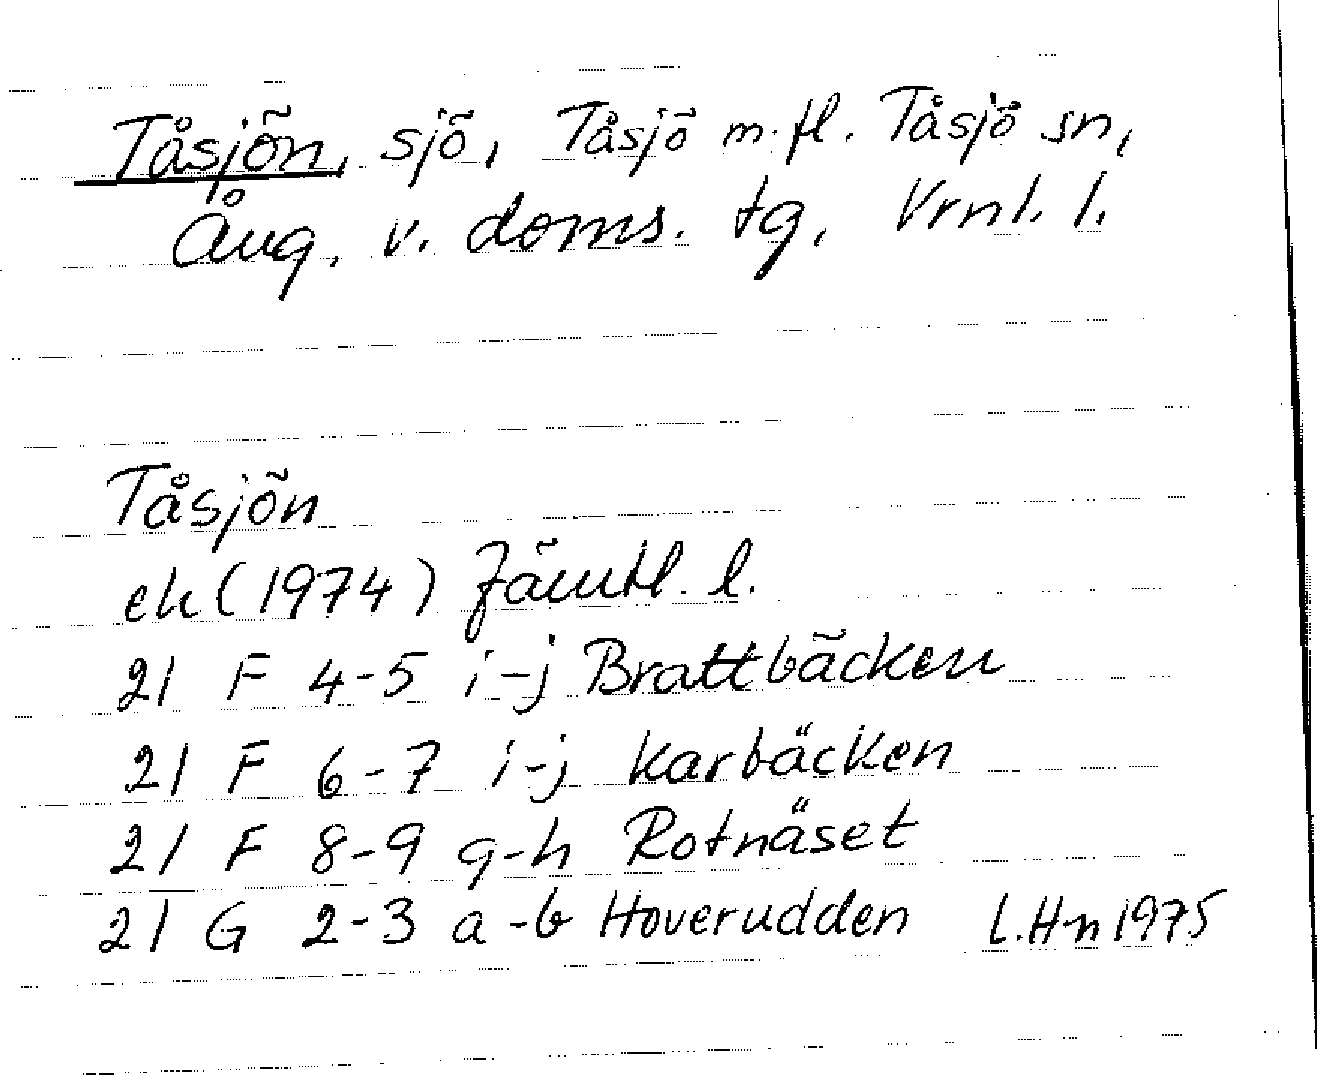 Tåsjön, sjö, Tåsjö m.fl. Tåsjö sn,
Ång. v. doms. tg, Vrnl. l.
Tåsjön
ek (1974) Jämtl. l.
21 F 4-5 i-j Brattbäcken
21 F 6-7 i-j Karbäcken
21 F 8-9 g-h Rotnäset
21 G 2-3 a-b Hoverudden L.H-n 1975